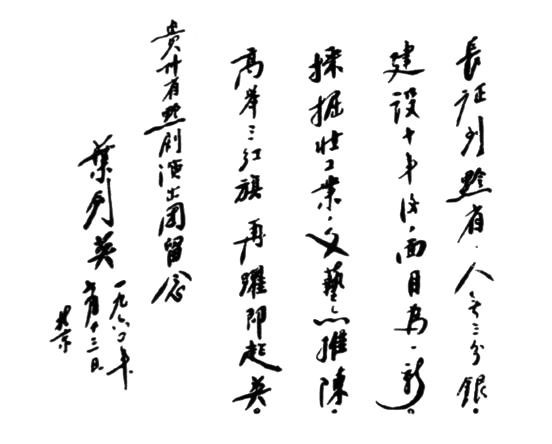 長征到黔省.人无三分銀。
建設十年後.面目為一新。
採掘壮工業.文藝亦推陳。
高举三红旗 再躍即超英。
貴州省黔剧演出団留念
葉剑英
一九六〇年
月十三日
北京